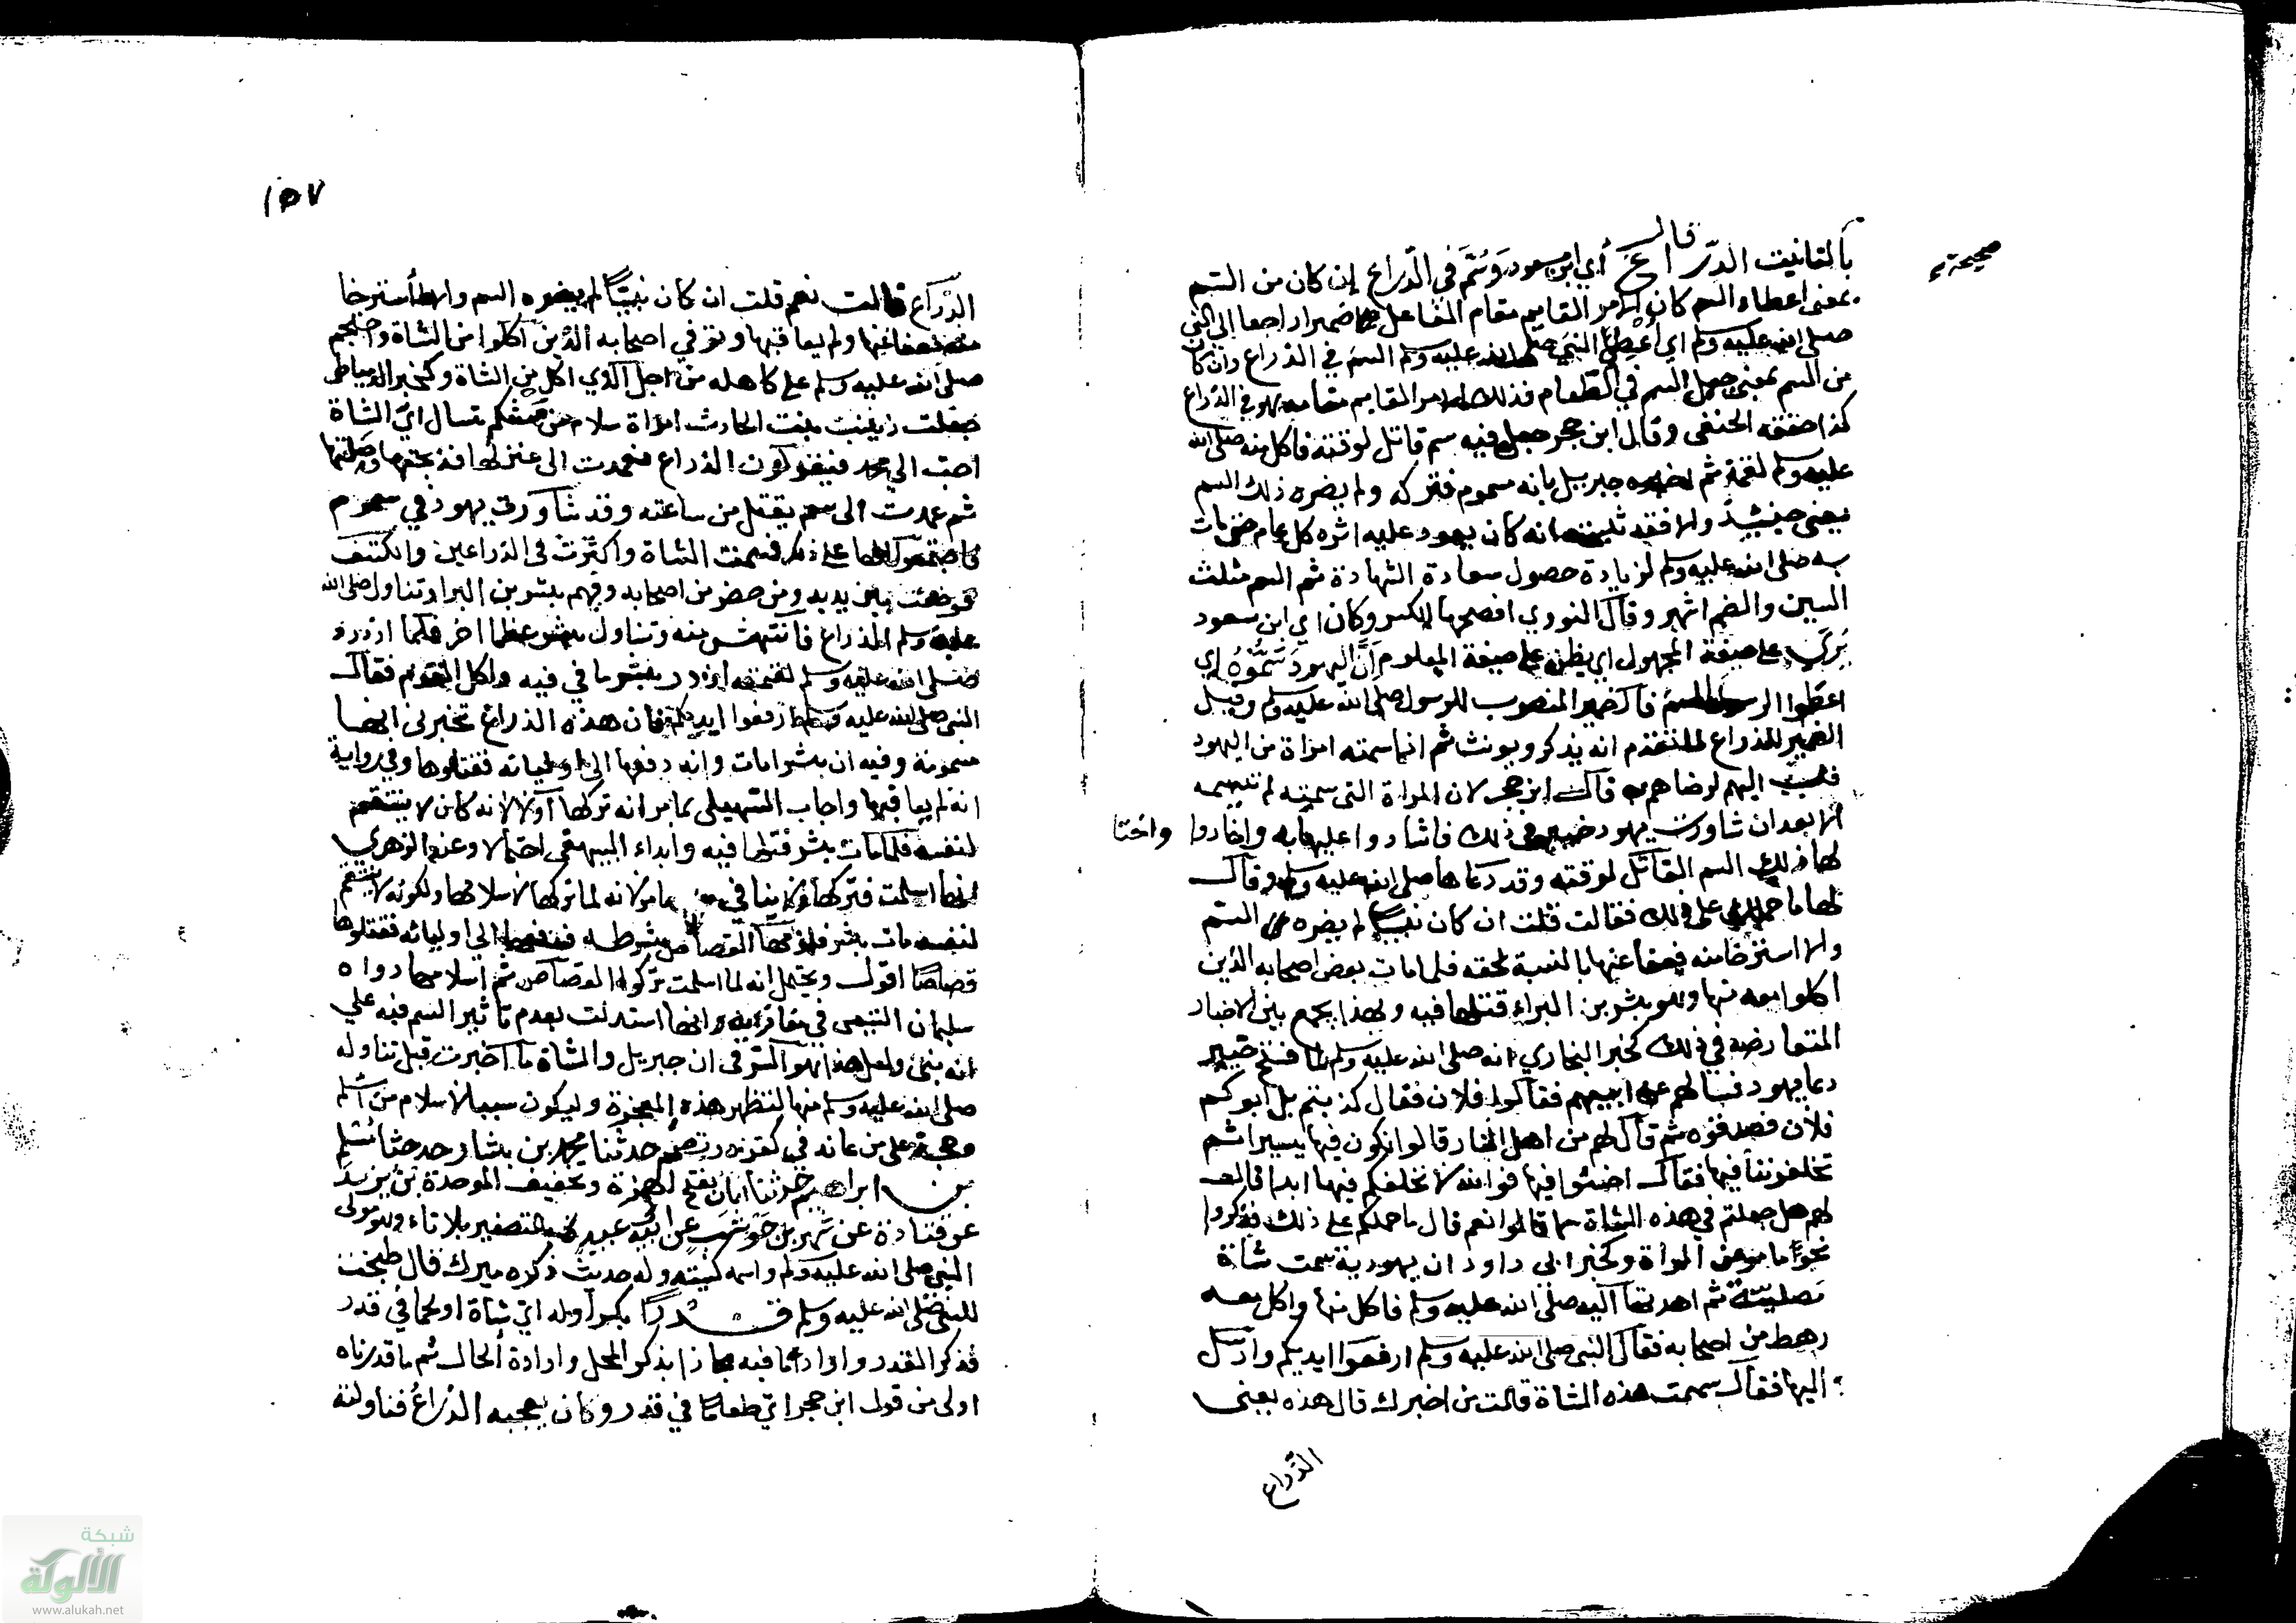 صحيحة
قال
بالتانيث الذراع أي ابن مسعود وسُمَّ في الذراع إن كان من السم
بمعنى اعطاء السم كان الامر القايم مقام الفاعل ضميرا راجعا الى النبي
صلى الله عليه وسلم اي أُعطي النبي صلى الله عليه وسلم السم في الذراع وان كان
من السم بمعنى جعل السم في الطعام فذلك الامر القايم مقامه هو في الذراع
كذا حققه الحنفي وقال ابن حجر جعل فيه سم قاتل لوقته فاكل منه صلى الله
عليه وسلم لقمة ثم اخبره جبريل بانه مسموم فتركه ولم يضره ذلك السم
يعني حينئذ والا فقد ثبت انه كان يعود عليه اثره كل عام حتى مات
به صلى الله عليه وسلم لزيادة حصول سعادة الشهادة ثم السم مثلث
السين والضم اشهر وقال النووي افصحها الكسر وكان اي ابن مسعود
يُرى على صيغة المجهول اي يظن على صيغة المعلوم أنّ اليهود سَمُّوهُ اي
اعطوا الرسول السم فالضمير المنصوب للرسول صلى الله عليه وسلم وقيل
الضمير للذراع لما تقدم انه يذكر ويونث ثم انما سمته امراة من اليهود
فنسب اليهم لرضاهم به قال ابن حجر لان المراة التي سمته لم تسمه
الا بعد ان شاورت يهود خيبر في ذلك فاشاروا عليها به واختاروا
واختا
لها ذلك السم القاتل لوقته وقد دعاها صلى الله عليه وسلم وقال
لها ما حملك على ذلك فقالت قلت ان كان نبيا لم يضره السم
والا استرحنا منه فعفا عنها بالنسبة لحقه فلما مات بعض اصحابه الذين
اكلوا معه منها وهو بشر بن البراء قتلها فيه وبهذا يجمع بين الاخبار
المتعارضة في ذلك كخبر البخاري انه صلى الله عليه وسلم لما فتح خيبر
دعا يهود فسالهم عن ابيهم فقالوا فلان فقال كذبتم بل ابوكم
فلان فصدقوه ثم قال لهم من اهل النار قالوا نكون فيها يسيرا ثم
تخلفوننا فيها فقال اخسئوا فيها فوالله لا نخلفكم فيها ابدا قال
لهم هل جعلتم في هذه الشاة سما قالوا نعم قال ما حملكم على ذلك فذكروا
نحوا ما مر عن المراة وكخبر ابي داود ان يهودية سمت شاة
مصلية ثم اهدتها اليه صلى الله عليه وسلم فاكل منها واكل معه
رهط من اصحابه فقال النبي صلى الله عليه وسلم ارفعوا ايديكم وارسل
اليها فقال سممت هذه الشاة قالت من اخبرك قال هذه يعني
الذراع
١٥٧
الذراع قالت نعم قلت ان كان نبيّاً لم يضره السم والا استرحنا
منه فعفا عنها ولم يعاقبها وتوفي اصحابه الذين اكلوا من الشاة واحتجم
صلى الله عليه وسلم على كاهله من اجل الذي اكل من الشاة وكخبر الدمياطي
جعلت زينب بنت الحارث امراة سلام بن مشكم تسال ايّ الشاة
احب الى محمد فيقولون الذراع فعمدت الى عنز لها فذبحتها وصلتها
ثم عمدت الى سم يقتل من ساعته وقد شاورت يهود في سموم
فاجتمعوا لها على ذلك فسمت الشاة واكثرت في الذراعين والكتف
فوضعت بين يديه ومن حضر من اصحابه وفيهم بشر بن البرا وتناول صلى الله
عليه وسلم الذراع فانتهش منه وتناول بشر عظما اخر فلما ازدرد
صلى الله عليه وسلم لقمته ازدرد بشر ما في فيه واكل القوم فقال
النبي صلى الله عليه وسلم ارفعوا ايديكم فان هذه الذراع تخبرني انها
مسمومة وفيه ان بشرا مات وانه دفعها الى اوليائه فقتلوها وفي رواية
انه لم يعاقبها واجاب السهيلي بما مر انه تركها اولا لانه كان لا ينتقم
لنفسه فلما مات بشر قتلها فيه وابداء البيهقي احتمالا وعند الزهري
انها اسلمت فتركها ولا ينافي ما مر لانه لما تركها لاسلامها ولكونه لا ينتقم
لنفسه مات بشر فلزمها القصاص بشرطه فدفعها الى اوليائه فقتلوها
قصاصًا اقول ويحتمل انه لما اسلمت تركوا القصاص ثم اسلامها رواه
سليمان التيمي في مغازيه وانها استدلت بعدم تاثير السم فيه على
انه نبي ولعل هذا هو السّر في ان جبريل والشاة ما اخبرت قبل تناوله
صلى الله عليه وسلم منها لتظهر هذه المعجزة وليكون سببا لاسلام من اسلم
وحجة على من عاند في كفره حدثنا محمد بن بشار حدثنا مسلم
بن ابراهيم حدثنا ابان بفتح الهمزة وتخفيف الموحدة بن يزيد
عن قتادة عن شهر بن حوشب عن ابي عبيد بالتصغير بلا تاء وهو مولى
النبي صلى الله عليه وسلم واسمه كنيته وله حديث ذكره ميرك قال طبخت
للنبي صلى الله عليه وسلم قدراً بكسر اوله اي شاة او لحما في قدر
فذكر القدر واراد ما فيه مجازا بذكر المحل وارادة الحال ثم ما قدرناه
اولى من قول ابن حجر اي طعاما في قدر وكان يعجبه الذراعُ فناولته
شبكة
الألوكة
www.alukah.net